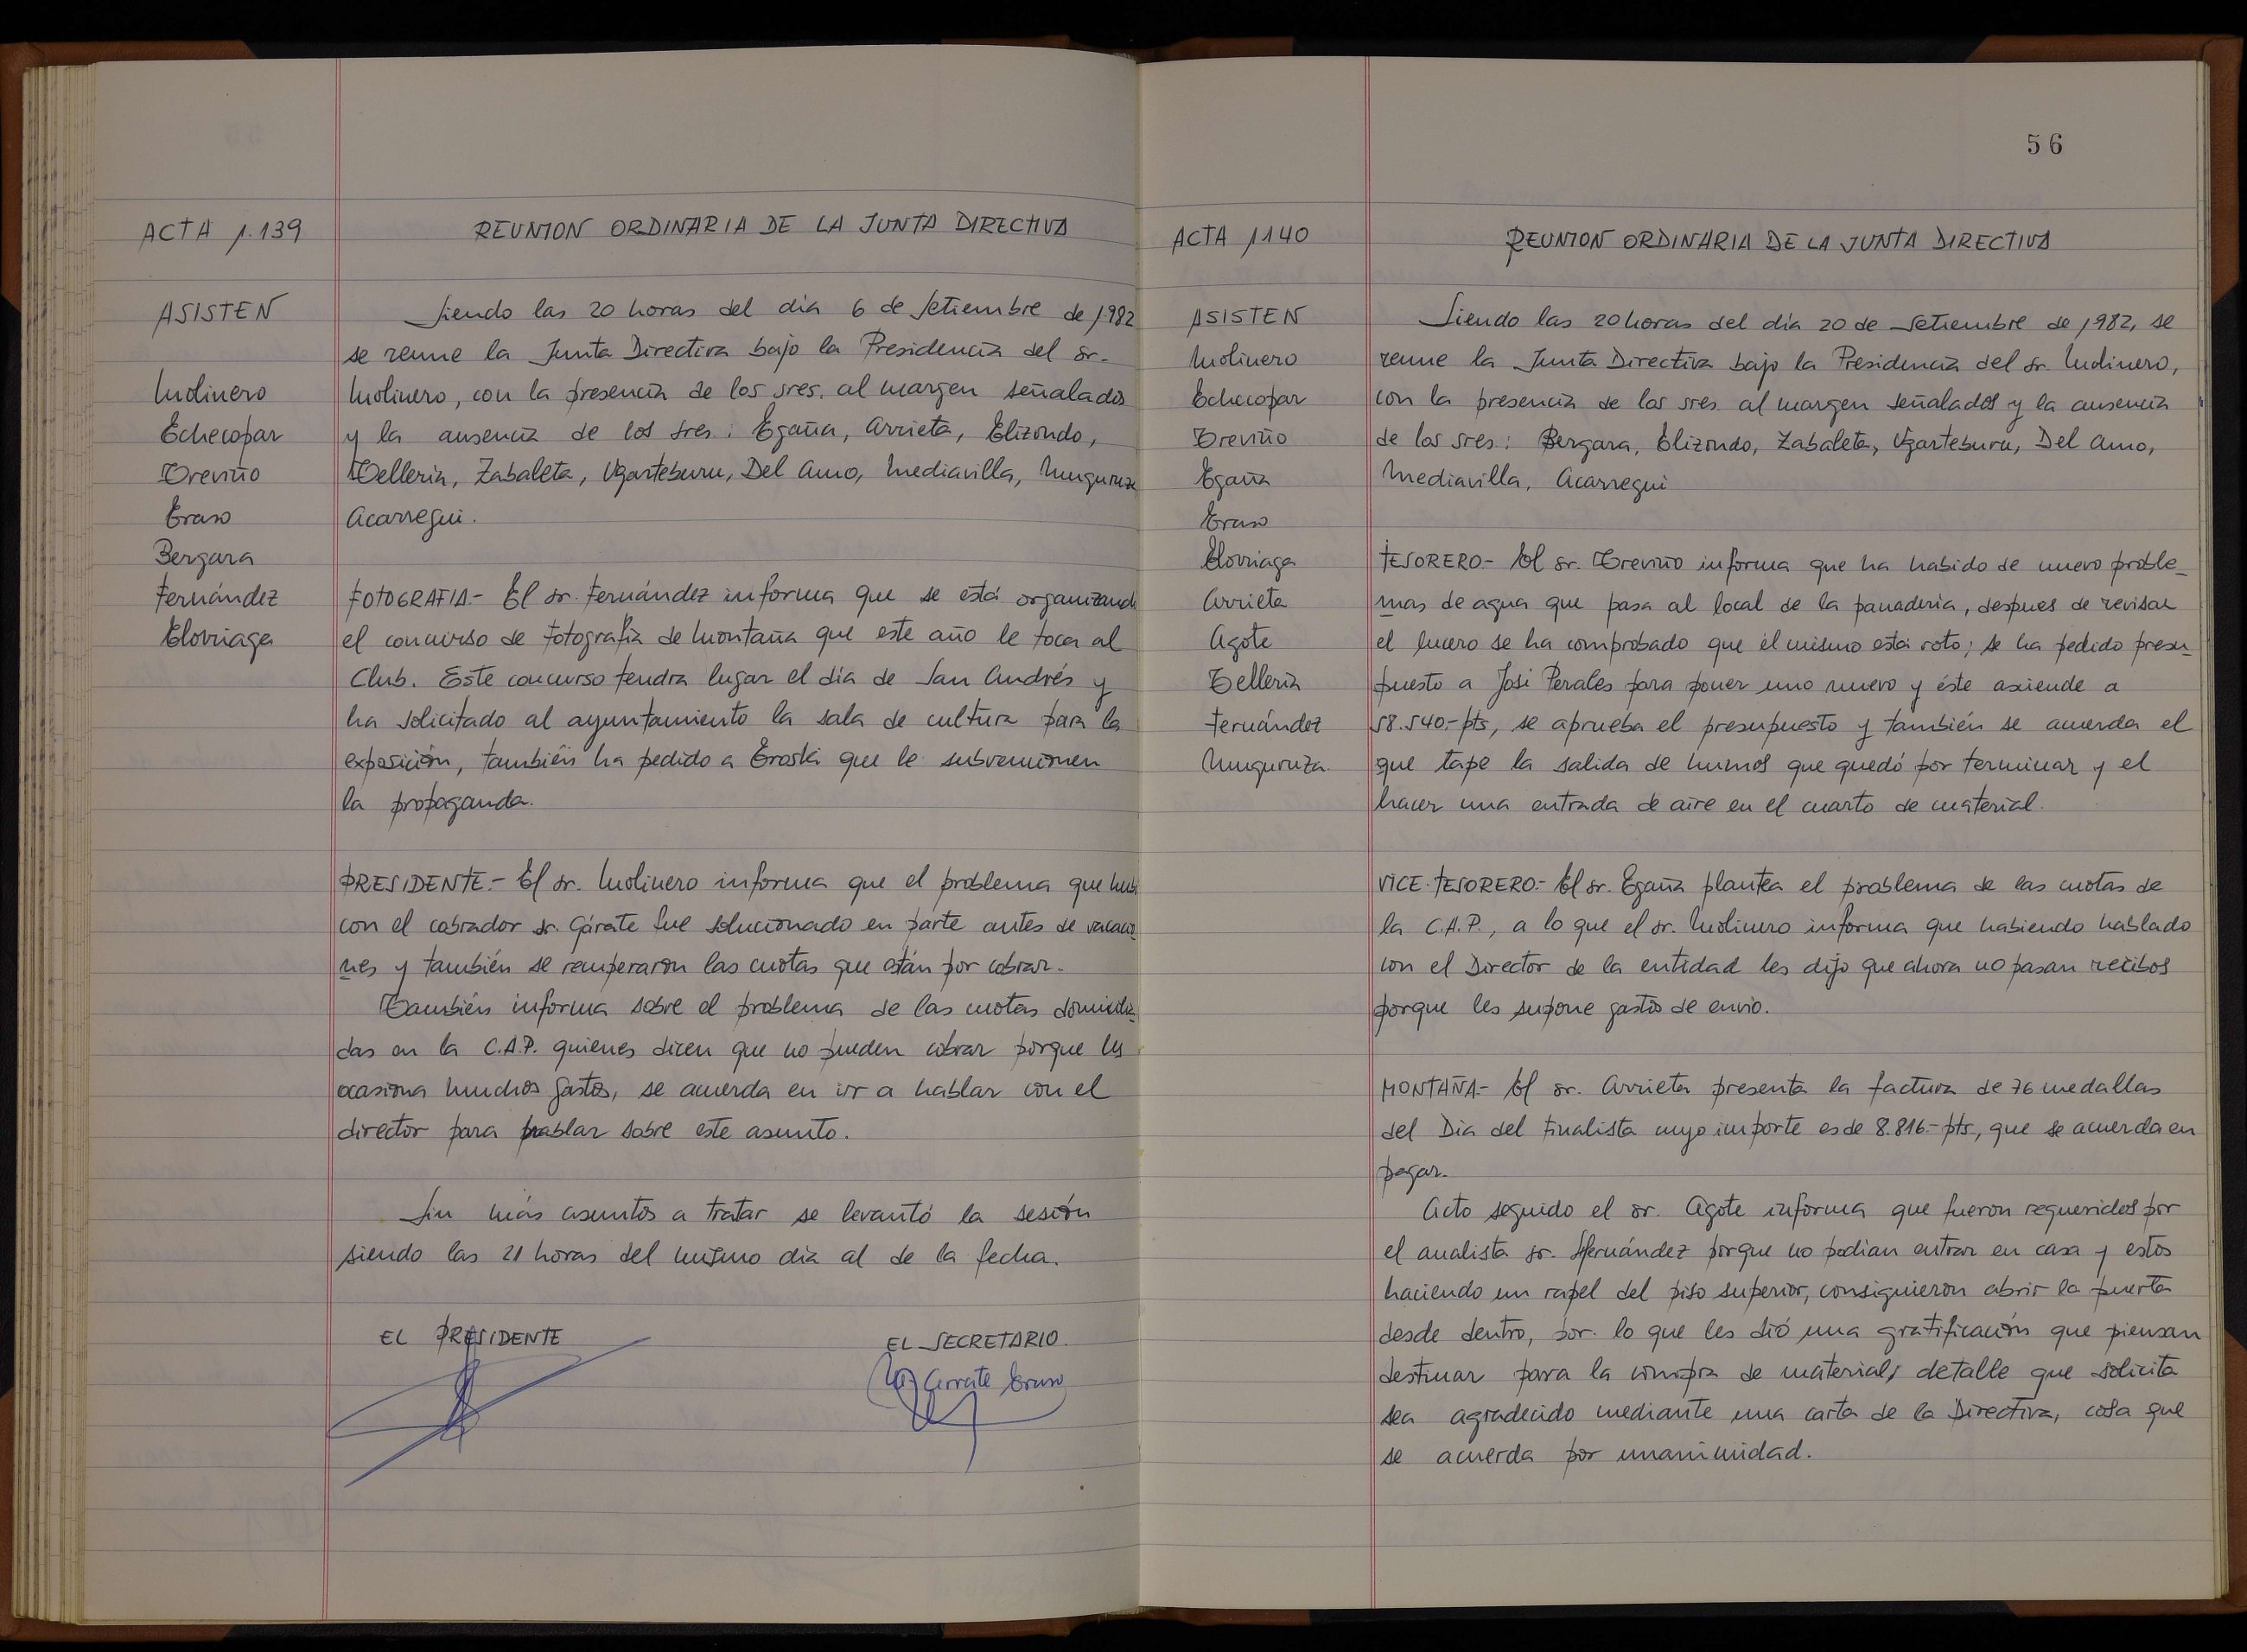 ACTA 1.139
REUNION ORDINARIA DE LA JUNTA DIRECTIVA
ASISTEN
Molinero
Echecopar
Treviño
Eraso
Bergara
Fernández
Elorriaga
Siendo las 20 horas del dia 6 de Setiembre de 1982
se reune la Junta Directiva bajo la Presidencia del sr.
Molinero, con la presencia de los sres. al margen señalados
y la ausencia de los sres: Egaña, Arrieta, Elizondo,
Telleria, Zabaleta, Ugarteburu, Del Amo, Mediavilla, Munguruza
Acarregui.
FOTOGRAFIA.- El sr. Fernández informa que se está organizando
el concurso de Fotografía de Montaña que este año le toca al
Club. Este concurso tendra lugar el día de San Andrés y
ha solicitado al ayuntamiento la sala de cultura para la
exposición, también ha pedido a Eroski que le subvencionen
la propaganda.
PRESIDENTE.- El sr. Molinero informa que el problema que
con el cobrador sr. Gárate fue solucionado en parte antes de vacacio
nes y también se recuperaron las cuotas que están por cobrar.
También informa sobre el problema de las cuotas domicilia
das en la C.A.P. quienes dicen que no pueden cobrar porque les
ocasiona muchos gastos, se acuerda en ir a hablar con el
director para hablar sobre este asunto.
Sin más asuntos a tratar se levantó la sesión
siendo las 21 horas del mismo dia al de la fecha.
EL PRESIDENTE
EL SECRETARIO
Arrate Eraso
56
ACTA 1140
REUNION ORDINARIA DE LA JUNTA DIRECTIVA
ASISTEN
Molinero
Echecopar
Treviño
Egaña
Eraso
Elorriaga
Arrieta
Agote
Telleria
Fernández
Munguruza
Siendo las 20 horas del día 20 de Setiembre de 1982, se
reune la Junta Directiva bajo la Presidencia del sr. Molinero,
con la presencia de los sres al margen señalados y la ausencia
de los sres: Bergara, Elizondo, Zabaleta, Ugarteburu, Del Amo,
Mediavilla, Acarregui
TESORERO.- El sr. Treviño informa que ha habido de nuevo proble_
mas de agua que pasa al local de la panaderia, despues de revisar
el lucero se ha comprobado que el mismo está roto; se ha pedido presu_
puesto a José Perales para poner uno nuevo y éste asciende a
58.540.-pts, se aprueba el presupuesto y también se acuerda el
que tape la salida de humos que quedó por terminar y el
hacer una entrada de aire en el cuarto de material.
VICE-TESORERO.- El sr. Egaña plantea el problema de las cuotas de
la C.A.P., a lo que el sr. Molinero informa que habiendo hablado
con el Director de la entidad les dijo que ahora no pasan recibos
porque les supone gastos de envio.
MONTAÑA.- El sr. Arrieta presenta la factura de 76 medallas
del Dia del Finalista cuyo importe es de 8.816.-pts, que se acuerda en
pagar.
Acto seguido el sr. Agote informa que fueron requeridos por
el analista sr. Hernández porque no podian entrar en casa y estos
haciendo un rapel del piso superior, consiguieron abrir la puerta
desde dentro, por lo que les dió una gratificación que piensan
destinar para la compra de material, detalle que solicita
sea agradecido mediante una carta de la Directiva, cosa que
se acuerda por unanimidad.